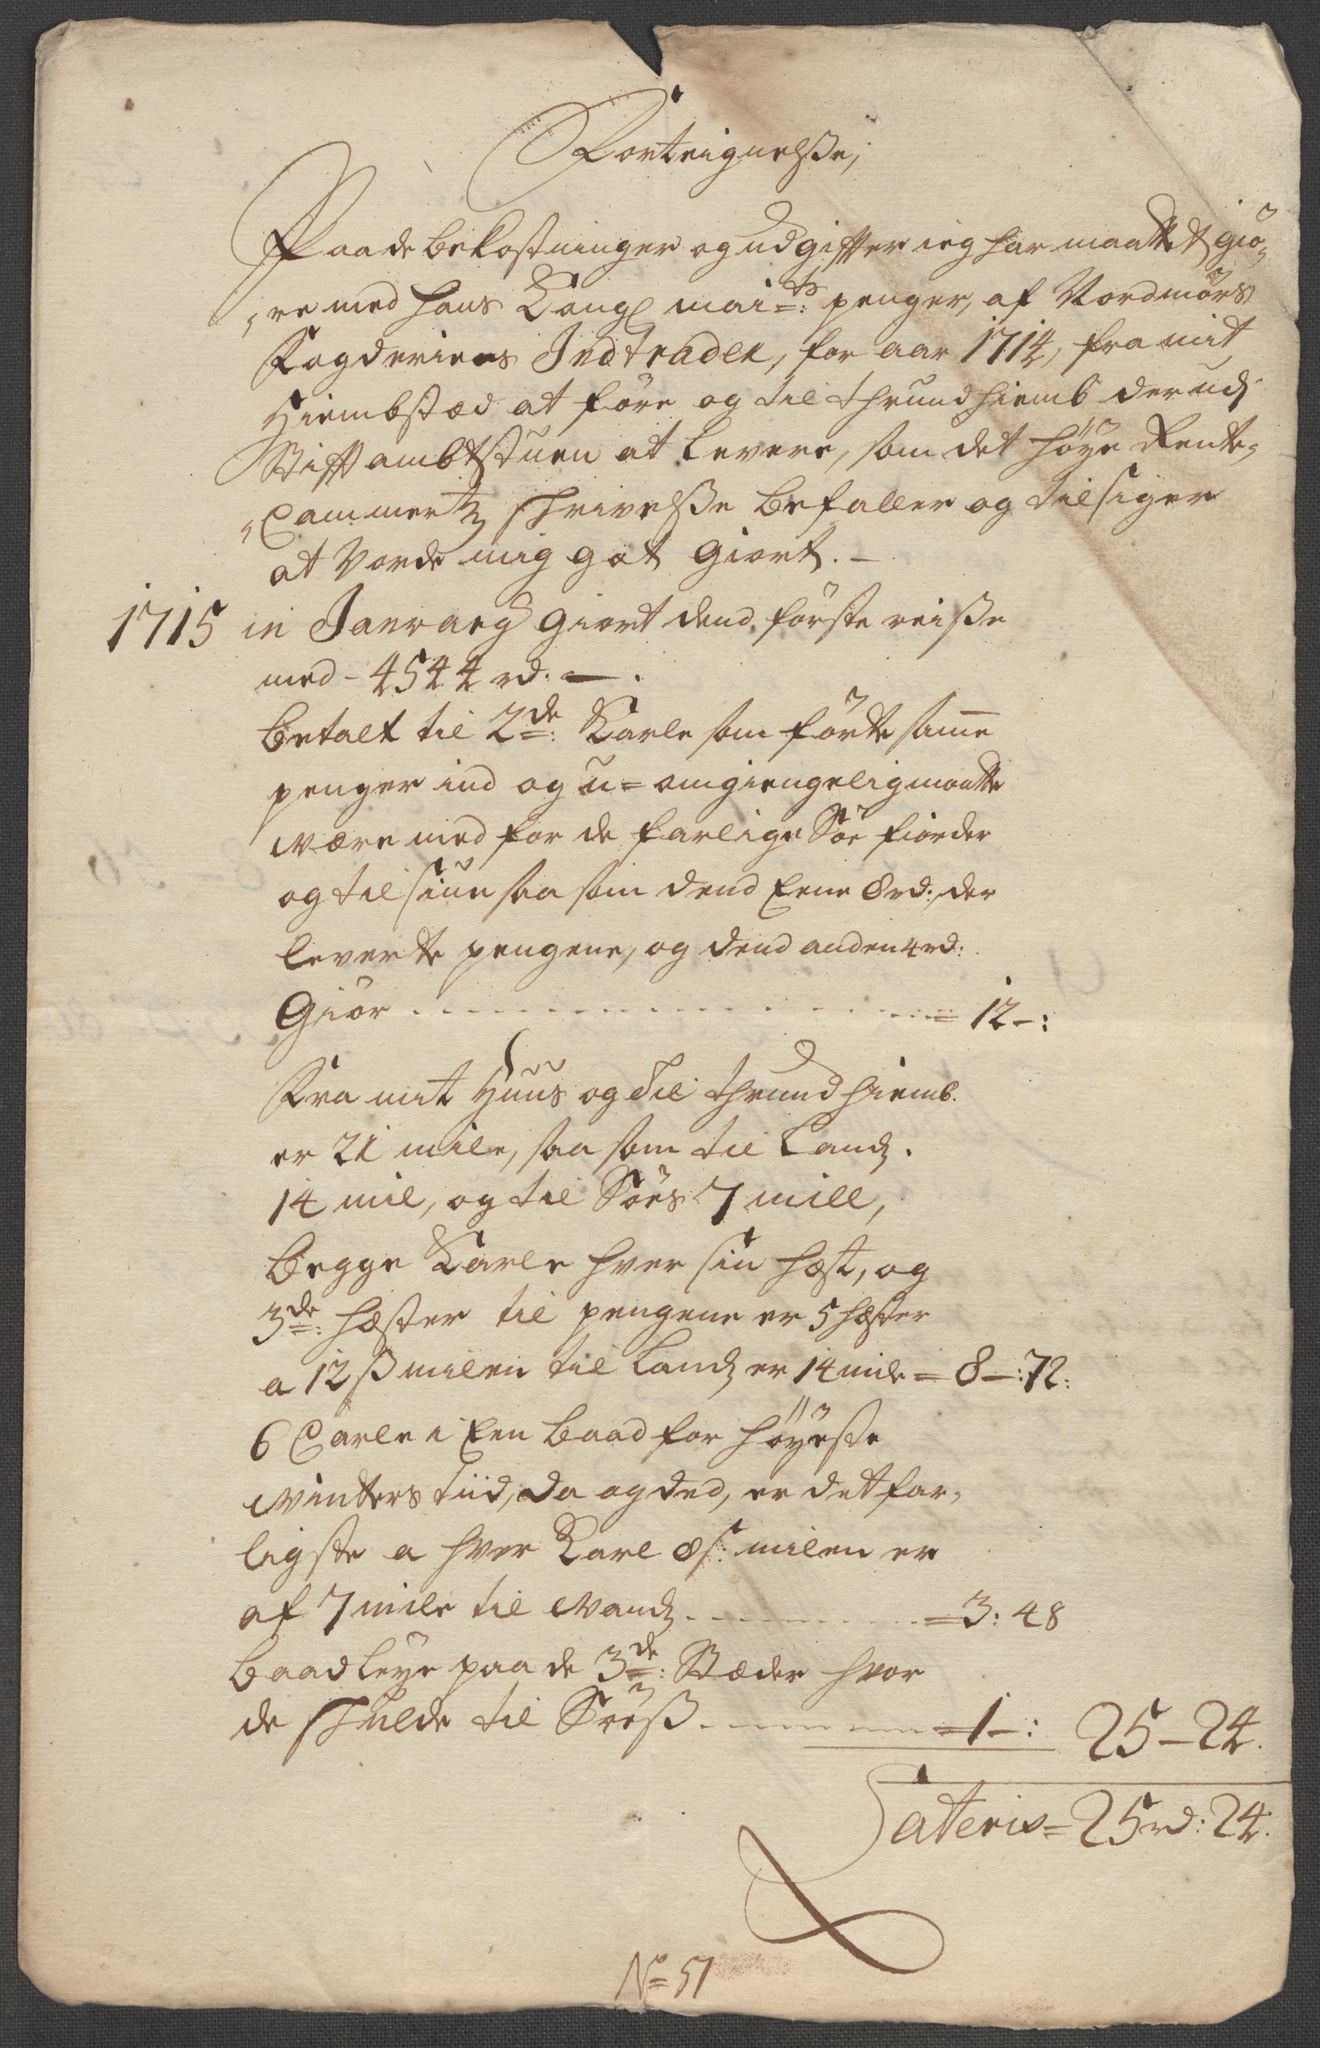 Forteignelsse,
Paa de bekostninger og udgiffter ieg har maattet giö-
re med hans Kongl mai=ts: penger, af Nordmörs
Fogderiens Indtrader, for aar 1714, fra mit
Hiembstæd at före og til Thrundhiemb derudj
Stifftambtstuen at levere, som det höye Rente-
Cammertz schrivelsse befaller og tilsiger
at Vorde mig got giort. -
1715 in Janvary giort dend förste reisse
med - 4544 rd. - .
betalt til 2de: Karle som förte samme
penger ind og u=omgiengelig maatte
være med for de farlige Söe fiorder
og til siun saa som dend Eene 8 rd: der
leverte pengene, og dend anden 4 rd:
Giör = 12 - :
Fra mit Huus og Til Thrundhiemb.
er 21 mile, saa som til Landz.
14 mil, og til Söes 7 mill,
begge Karle hver sin hæst, og
3de: hæster til pengene er 5 hæster
a 12 ß milen til Landz er 14 mile = 8 - : 72:
6 Carle i Een baad for höyeste
vinters tiid, da og ded, er det far-
ligste a hver Karl 8 s: milen er
af 7 mile til Vandz = 3: 48
baadleye paa de 3de: Stæder hvor
de schulde til Söess = 1 - : 25 - 24.
Lateris = 25 rd: 24.
No 51